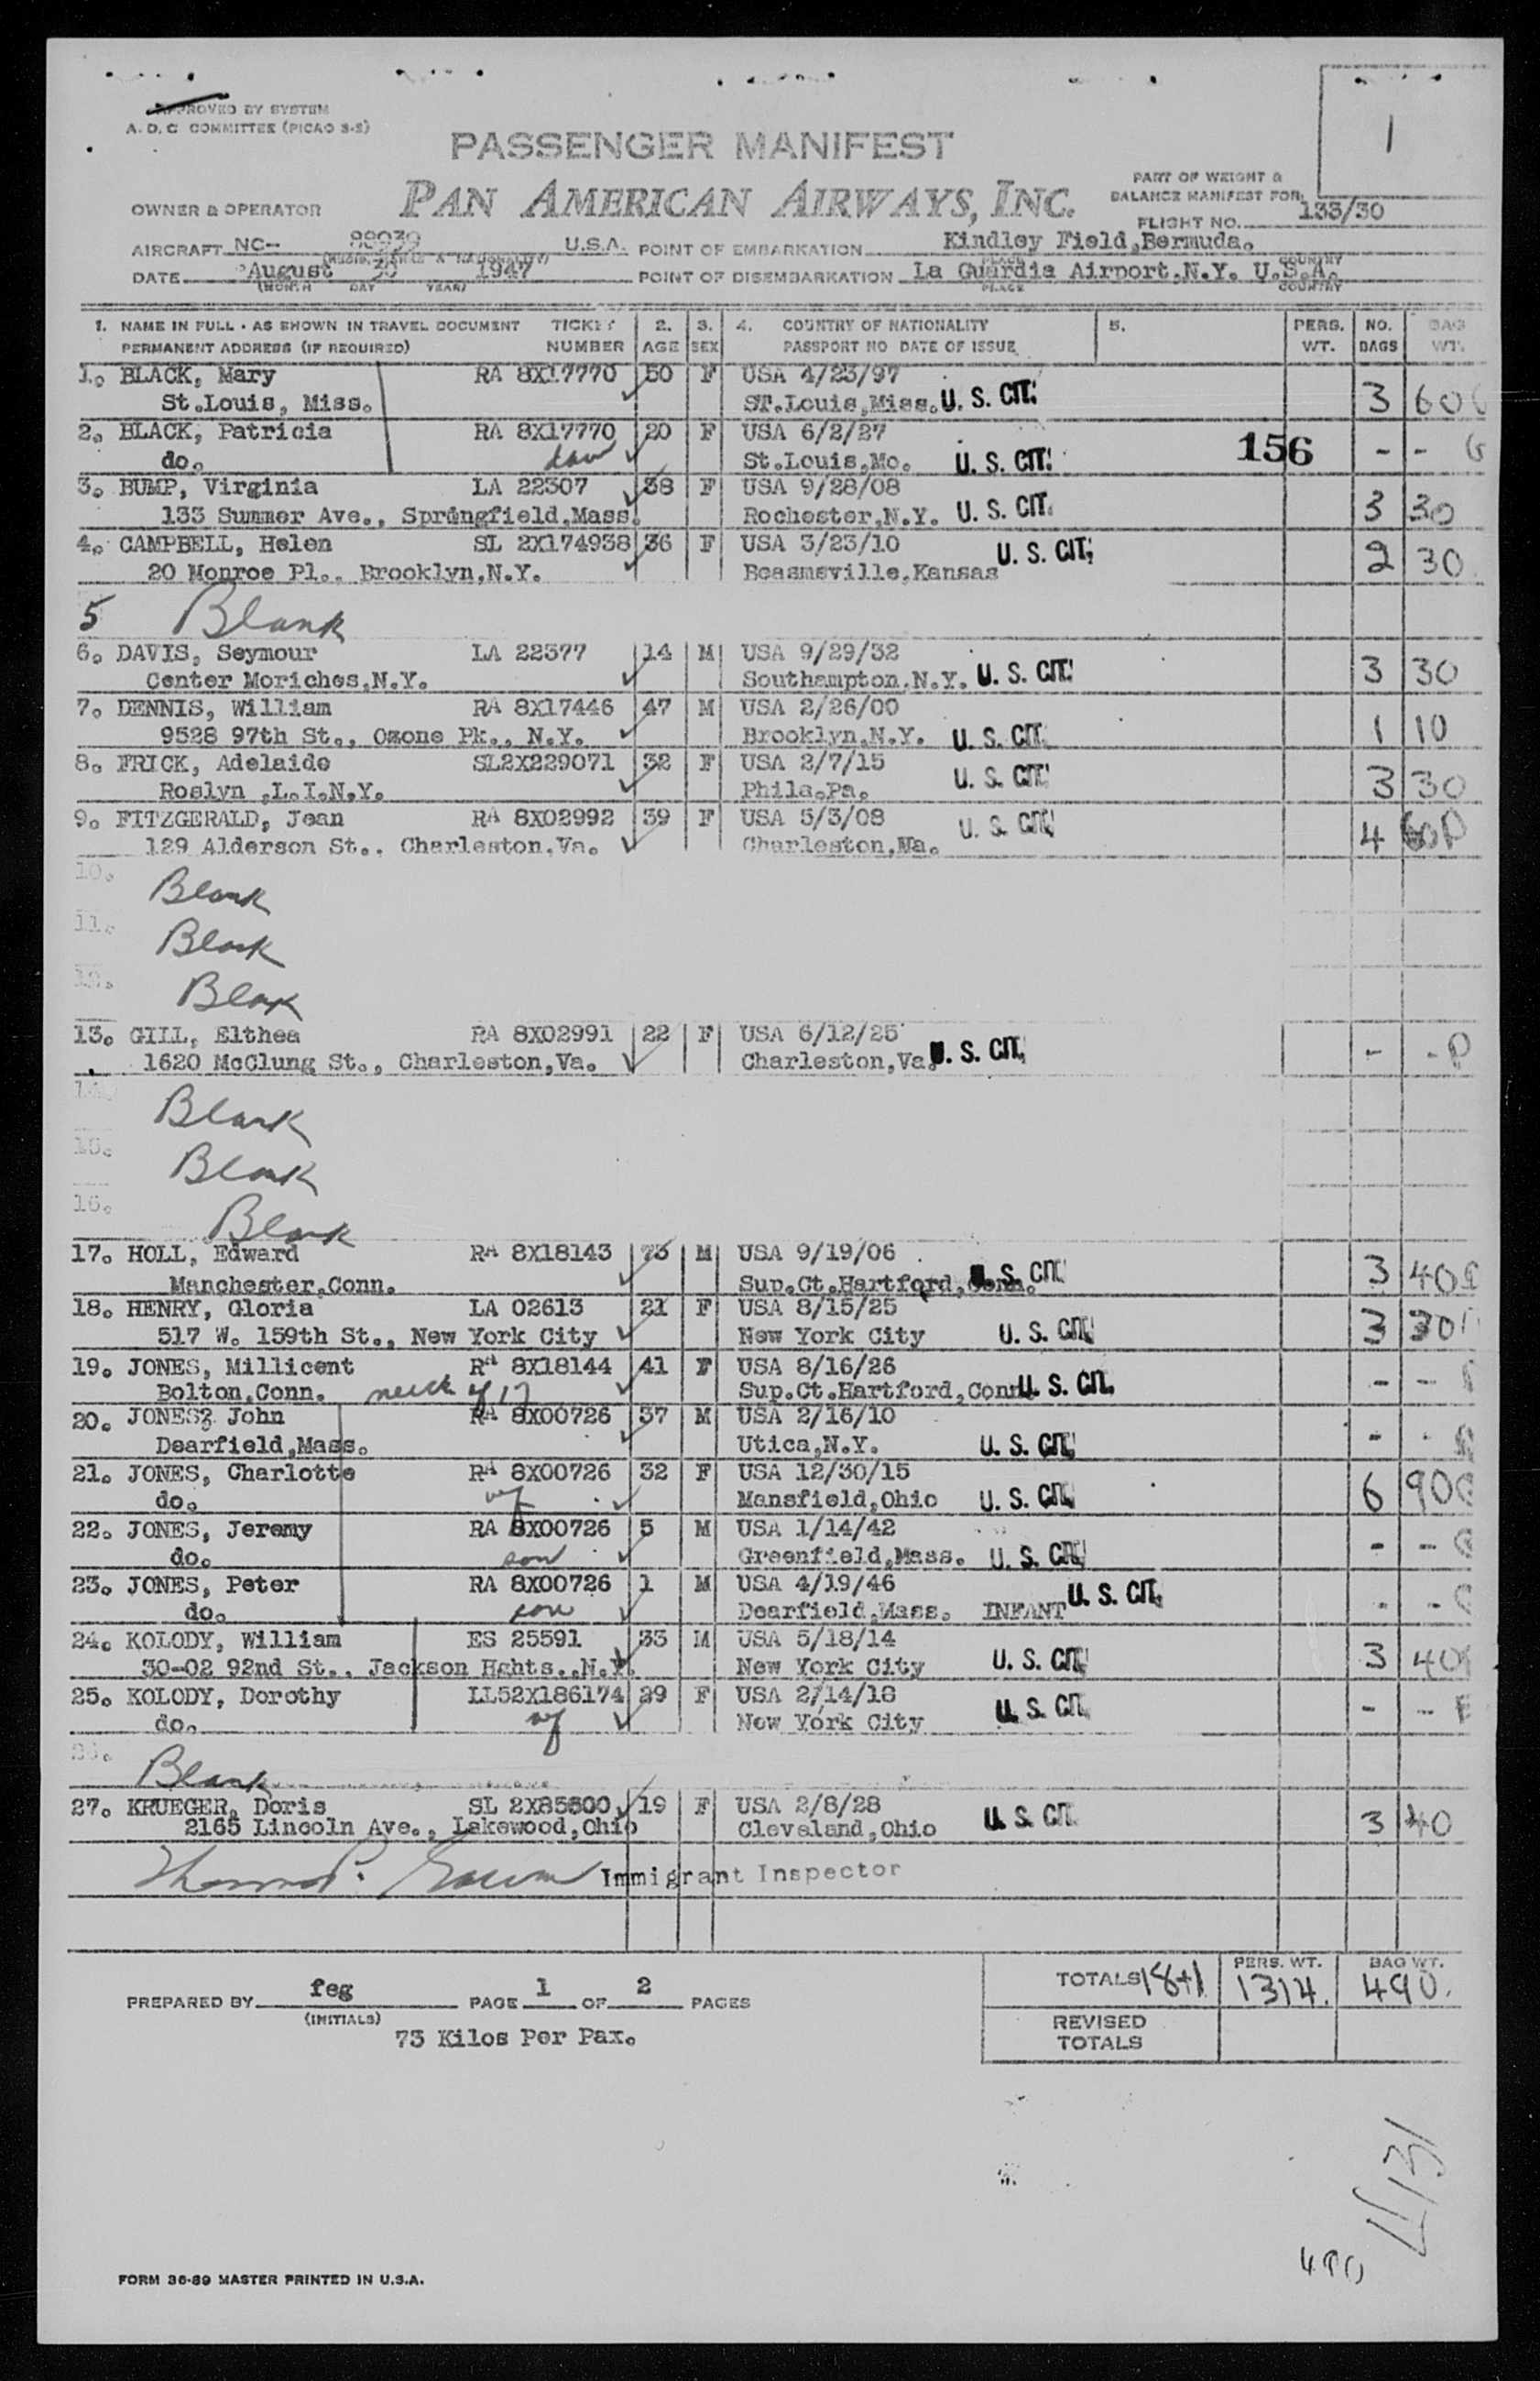 APPROVED BY SYSTEM
A. D. C. COMMITTEE (PICAO 3-2)
1
PASSENGER MANIFEST
PAN AMERICAN AIRWAYS, INC.
PART OF WEIGHT &
BALANCE MANIFEST FOR
OWNER & OPERATOR
FLIGHT NO. 133/30
AIRCRAFT NC-- 88939 U.S.A. POINT OF EMBARKATION Kindley Field, Bermuda.
DATE August 30 1947 POINT OF DISEMBARKATION La Guardia Airport, N.Y. U.S.A.
(MONTH DAY YEAR) PLACE COUNTRY
1. NAME IN FULL - AS SHOWN IN TRAVEL DOCUMENT TICKET 2. 3. 4. COUNTRY OF NATIONALITY 5. PERS. NO. BAG
PERMANENT ADDRESS (IF REQUIRED) NUMBER AGE SEX PASSPORT NO DATE OF ISSUE WT. BAGS WT.
1. BLACK, Mary RA 8X17770 50 F USA 4/23/97
St.Louis, Miss. ST.Louis,Miss. U. S. CIT. 3 60
2. BLACK, Patricia RA 8X17770 20 F USA 6/2/27 156
do. dau St.Louis,Mo. U. S. CIT. - -
3. BUMP, Virginia LA 22307 38 F USA 9/28/08
133 Summer Ave., Springfield,Mass. Rochester,N.Y. U. S. CIT. 3 30
4. CAMPBELL, Helen SL 2X174938 36 F USA 3/23/10
20 Monroe Pl., Brooklyn,N.Y. Beasmsville,Kansas U. S. CIT. 2 30
5 Blank
6. DAVIS, Seymour LA 22377 14 M USA 9/29/32
Center Moriches,N.Y. Southampton,N.Y. U. S. CIT. 3 30
7. DENNIS, William RA 8X17446 47 M USA 2/26/00
9528 97th St., Ozone Pk., N.Y. Brooklyn,N.Y. U. S. CIT. 1 10
8. FRICK, Adelaide SL2X229071 32 F USA 2/7/15
Roslyn ,L.I.N.Y. Phila.Pa. U. S. CIT. 3 30
9. FITZGERALD, Jean RA 8X02992 39 F USA 5/3/08
129 Alderson St., Charleston,Va. Charleston,Wa. U. S. CIT. 4
10. Blank
11. Blank
12. Blank
13. GILL, Elthea RA 8X02991 22 F USA 6/12/25
1620 McClung St., Charleston,Va. Charleston,Va. U. S. CIT. - - P
14. Blank
15. Blank
16. Blank
17. HOLL, Edward RA 8X18143 73 M USA 9/19/06
Manchester,Conn. Sup.Ct.Hartford,Conn. U. S. CIT. 3 40
18. HENRY, Gloria LA 02613 21 F USA 8/15/25
517 W. 159th St., New York City New York City U. S. CIT. 3 30
19. JONES, Millicent RA 8X18144 41 F USA 8/16/26
Bolton,Conn. of 17 Sup.Ct.Hartford,Conn. U. S. CIT. - -
20. JONES, John RA 8X00726 37 M USA 2/16/10
Dearfield,Mass. Utica,N.Y. U. S. CIT. - -
21. JONES, Charlotte RA 8X00726 32 F USA 12/30/15
do. wf Mansfield,Ohio U. S. CIT. 6 90
22. JONES, Jeremy RA 8X00726 5 M USA 1/14/42
do. son Greenfield,Mass. U. S. CIT. - -
23. JONES, Peter RA 8X00726 1 M USA 4/19/46
do. son Dearfield,Mass. INFANT U. S. CIT. - -
24. KOLODY, William ES 25591 33 M USA 5/18/14
30-02 92nd St., Jackson Hghts.,N.Y. New York City U. S. CIT. 3 40
25. KOLODY, Dorothy LL52X186174 29 F USA 2/14/18
do. wf New York City U. S. CIT. - -
26. Blank
27. KRUEGER, Doris SL 2X85600 19 F USA 2/8/28
2165 Lincoln Ave., Lakewood,Ohio Cleveland,Ohio U. S. CIT. 3 40
Immigrant Inspector
PREPARED BY feg PAGE 1 OF 2 PAGES
(INITIALS)
73 Kilos Per Pax.
PERS. WT. BAG WT.
TOTALS 18+1 1314. 490.
REVISED
TOTALS
490
FORM 36-89 MASTER PRINTED IN U.S.A.